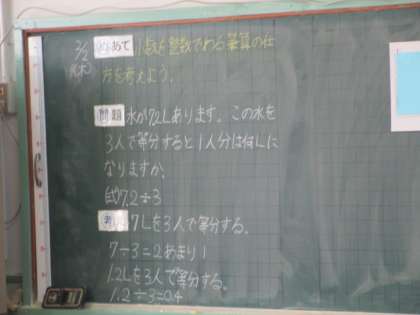 めあて 小数を整数でわる筆算の仕
方を考えよう。
問題 水が7.2Lあります。この水を
3人で等分すると1人分は何Lに
なりますか。
式7.2÷3
7Lを3人で等分する。
7÷3=2あまり1
1.2Lを3人で等分する。
1.2÷3=0.4